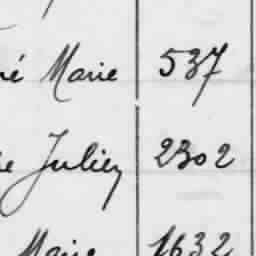 né Marie 537
Julien 2302
Marie 1632